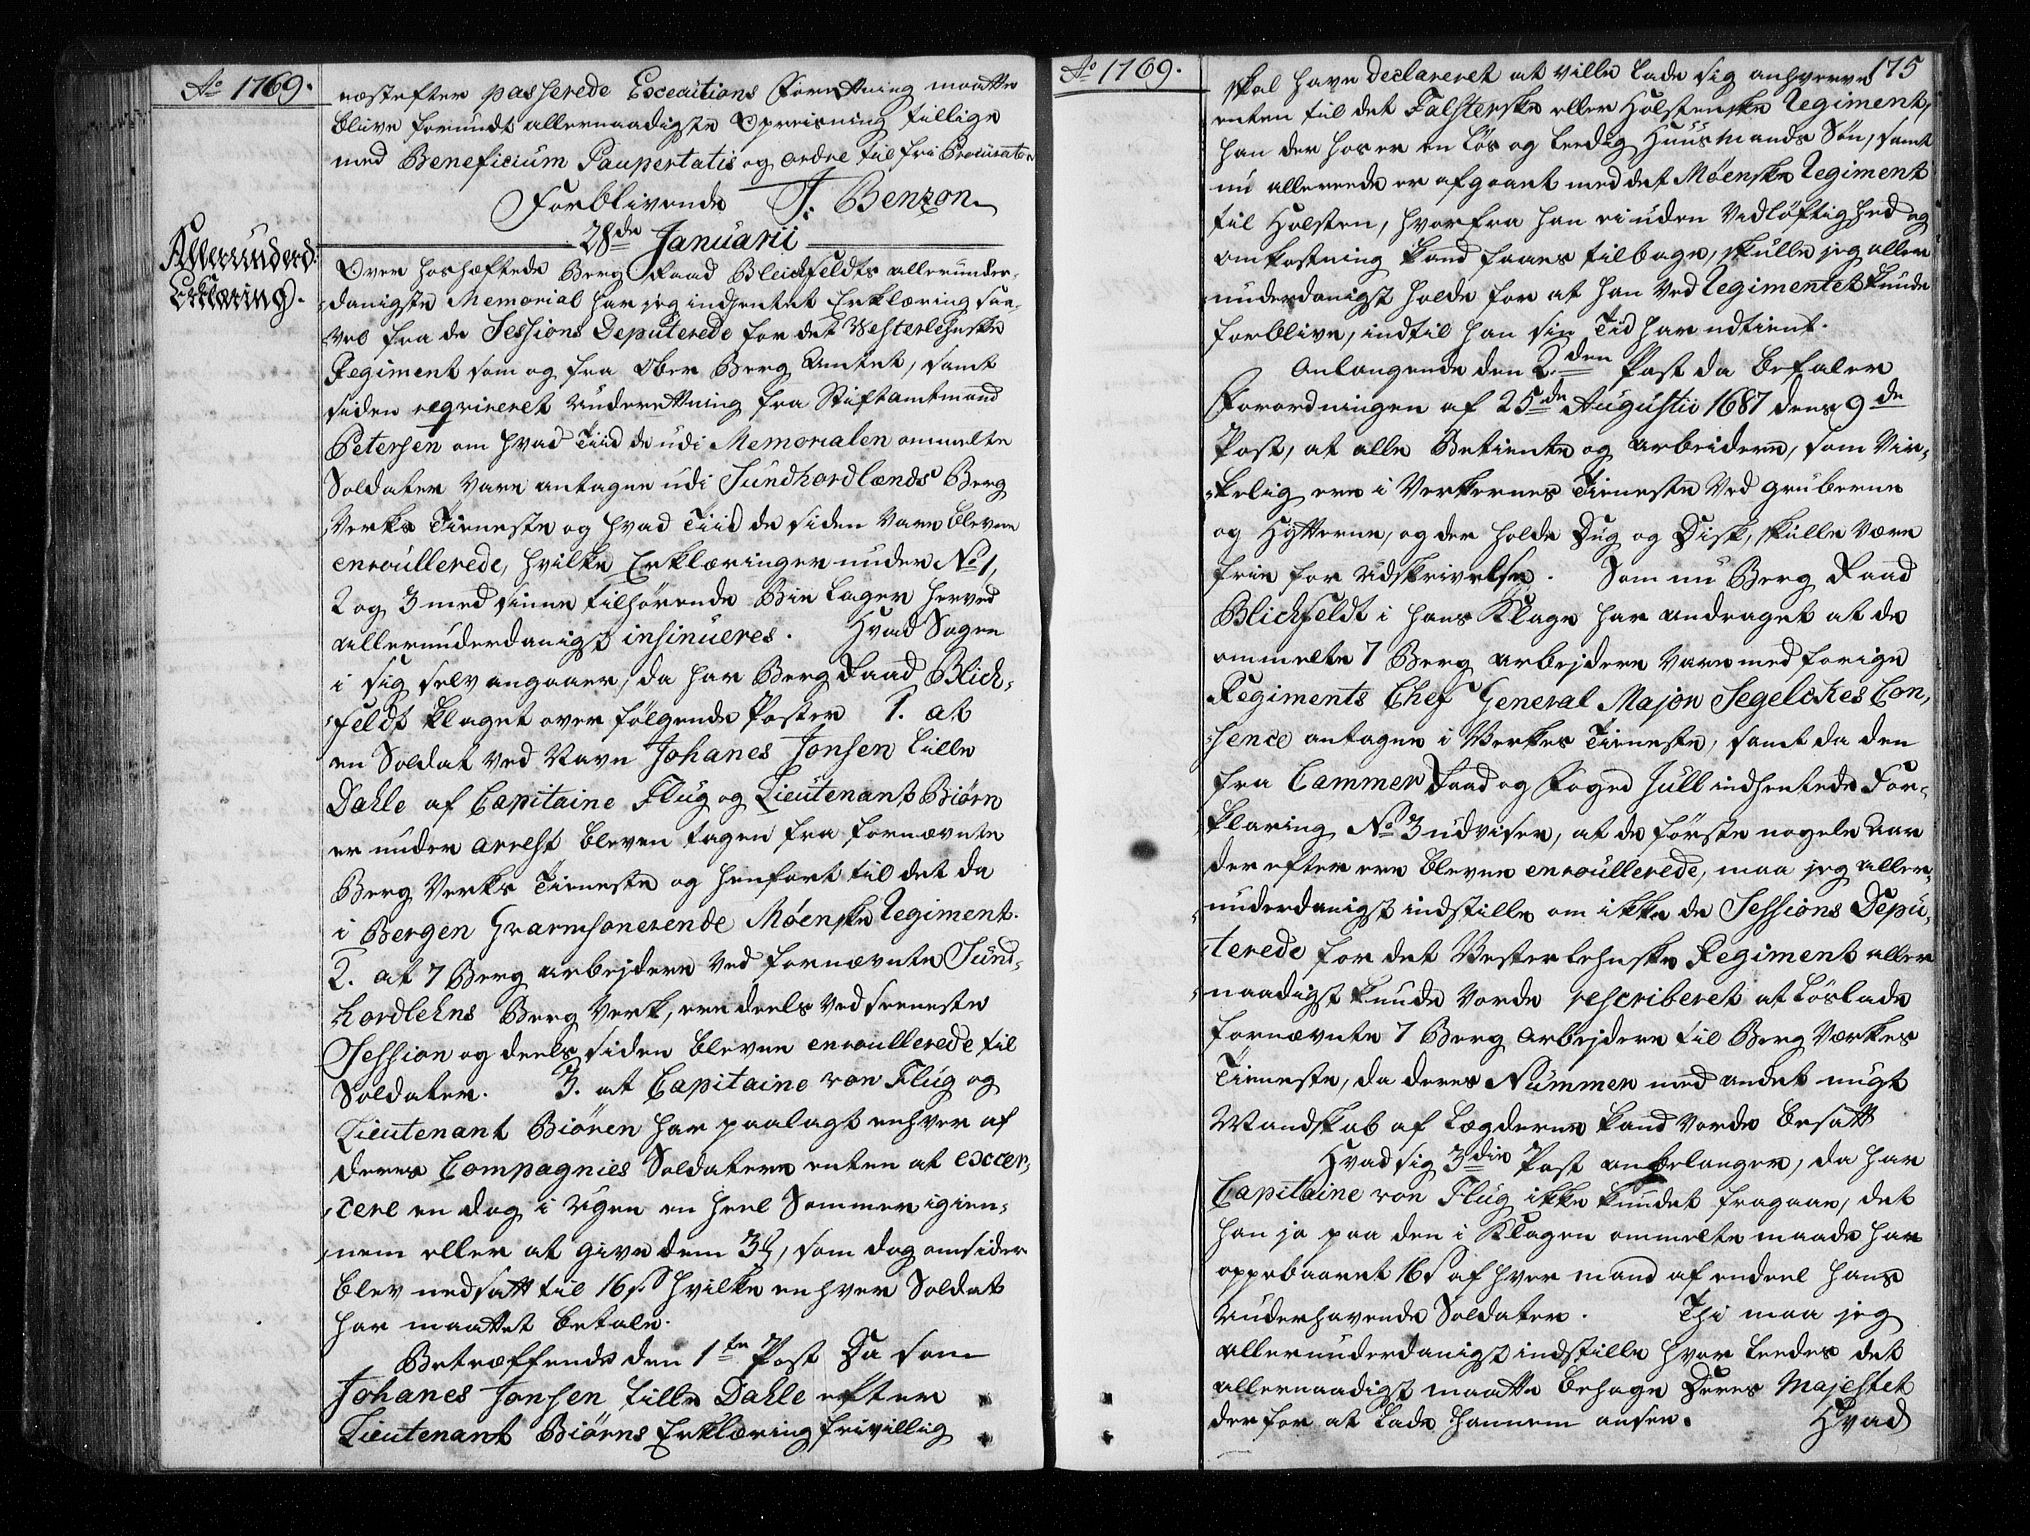 Ao 1769.
næstefter passerede Execeutions Forretning maatte
blive forundt allernaadigste Opreisning tillige
med Beneficium Paupertatis og ordre til fri Procurator
Forblivende J: Benzon
28de Januarii
Allerunderd:
Erklæring.
Over hoshæftede Berg Raad Blichfeldts allerunder-
danigste Memorial har jeg indhentet Erklæring saa-
vel fra de Sessions Deputerede for det Westerlehnske
Regiment som og fra Ober Berg Amtet, samt
siden reqvireret Underretning fra Stiftamtmand
Petersen om hvad Tiid de udi Memorialen ommelte
Soldater vare antagne udi Sundhordlænds Berg
Verks Tieneste og hvad Tiid de siden vare blevne
enroullerede, hvilke Erklæringer under No 1,
2 og 3 med sinne tilhørende Bielager herved
allerunderdanigst insinueres. Hvad Sagen
i sig selv angaaer, da har Berg Raad Blich-
feldt klaget over følgende Poster 1. at
en Soldat ved Navn Johanes Jonsen Lille
Dahle af Capitaine Flug og Lieutenant Biørn
er under arrest bleven tagen fra fornævnte
Berg Verks Tieneste og henført til det da
i Bergen Gvarnisonerende Møenske Regiment.
2. at 7 Berg arbejdere ved fornævnte Sund-
hordlehns Berg Verk, ere deels ved seeneste
Session og deels siden blevne enroullerede til
Soldater. 3. at Capitaine von Flug og
Lieutenant Biøren har paalagt enhver af
deres Compagnies Soldatere enten at excer-
cere en dag i Ugen en heel Sommer igien-
nem eller at give dem 3 ₰, som dog omsider
blev nedsatt til 16 s. hvilke enhver Soldat
har maattet betale.
Betræffende den 1te Post Da som
Johanes Jonsen Lille Dahle efter
Lieutenant Biørns Erklæring frivillig
Ao 1769.
175
skal have declareret at ville lade sig anhverve
enten til det Falsterske eller Holstenske Regiment,
han der hos er en løs og leedig Huusmands Søn, samt
nu allerede er afgaaet med det Møenske Regiment
til Holsten, hvorfra han ei uden Vidløftighed og
omkostning kand faaes tilbage, skulle jeg aller
underdanigst holde for at han ved Regimentet kunde
forblive, indtil han sin Tid har udtient.
Anlangende den 2den Post da befaler
Forordningen af 25de Augustii 1687 dens 9de
Post, at alle Betiente og arbeidere, som Vir-
kelig ere i Verkernes Tieneste ved gruberne
og Hytterne, og der holde Dug og Disk, skulle være
frie for Udskrivelse. Som nu Berg Raad
Blichfeldt i hans Klage har andraget at de
ommelte 7 Berg arbejdere vare med forige
Regiments Chef General Major Segelckes Con-
sence antagne i Verkes Tieneste, samt da den
fra Cammer Raad og Foged Jull indhentede For-
klaring No 3 udviser, at de første nogele Aar
derefter ere blevne enroullerede, maa jeg aller-
underdanigst indstille om ikke de Sessions Depu-
terede for det Vesterlehnske Regiment aller
naadigst kunde vorde rescriberet at løslade
fornævnte 7 Berg arbejdere til Berg Værkes
Tieneste, da deres Nummer med andet nugt
Mandskab af Lægderne kand vorde besatt
Hvad sig 3die Post anbelanger, da har
Capitaine von Flug ikke kundet fragaae, det
han jo paa den i Klagen ommelte maade har
oppebaaret 16 s af hver mand af endeel hans
Underhavende Soldater. Thi maa jeg
allerunderdanigst indstille hvor leedes det
allernaadigst maatte behage Deres Majestet
derfor at lade hannem ansee.
Hvad